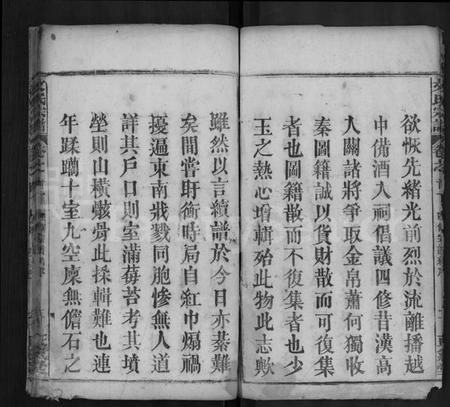 欲恢先緒光前烈於流離播越
中備酒人祠倡議四修昔漢高
入關諸將爭取金帛蕭何獨收
秦圖籍誠以貨財散而可復集
者也圖籍散而不復集者也少
玉之熱心增輯殆此物此志歟
雖然以言續譜於今日亦綦難
矣間嘗盱衡時局自紅巾煽禍
擾逼東南戕戮同胞慘無人道
詳其戶口則室滿莓苔考其墳
塋則山橫骸骨此採輯難也連
年蹂躪十室九空廩無儋石之